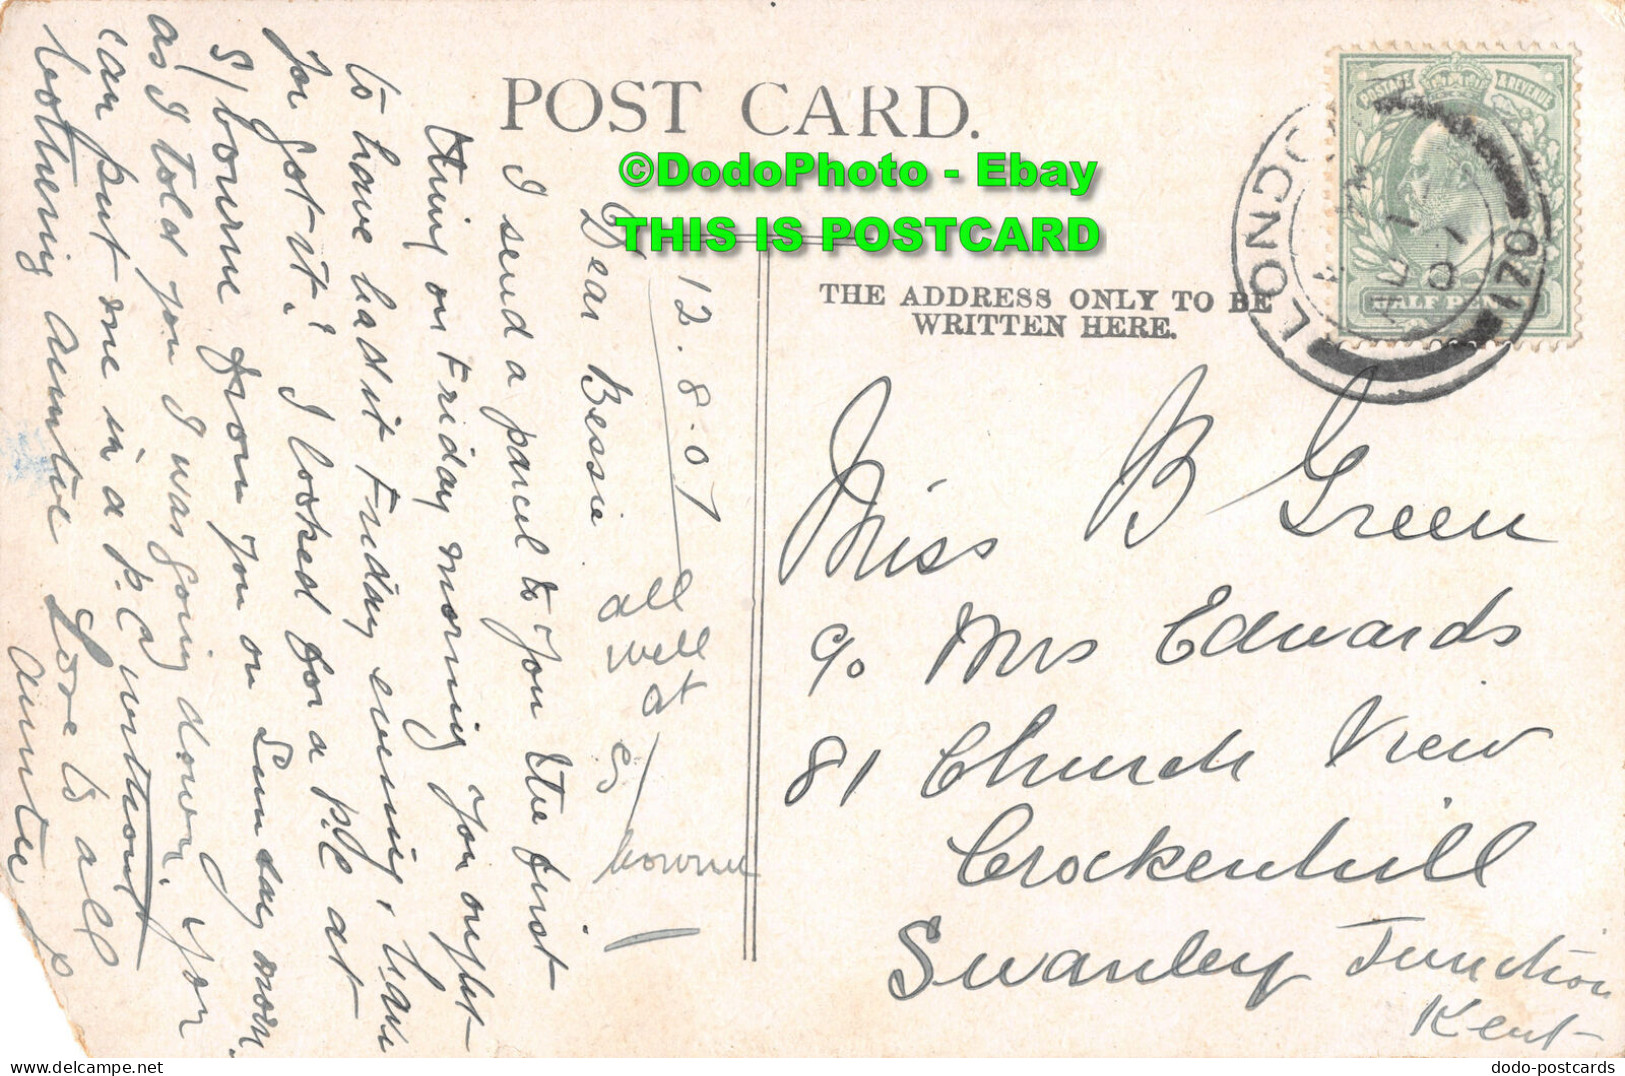 POST CARD.
©DodoPhoto - Ebay
THIS IS POSTCARD
THE ADDRESS ONLY TO BE
WRITTEN HERE.
POSTAGE & REVENUE
HALF PENNY
LONDON
170
12.8.07
Dear Bessie
I send a parcel to you the first
thing on Friday morning you ought
to have had it Friday evening, have
you got it? I looked for a P.C at
S/bourne from you on Sunday morn.
as I told you I was going down. you
can put one in a P.C without
bothering auntie Love to all
auntie
all
well
at
S/
bourne
Miss B Green
c/o Mrs Edwards
81 Church View
Crockenhill
Swanley Junction
Kent
dodo-postcards